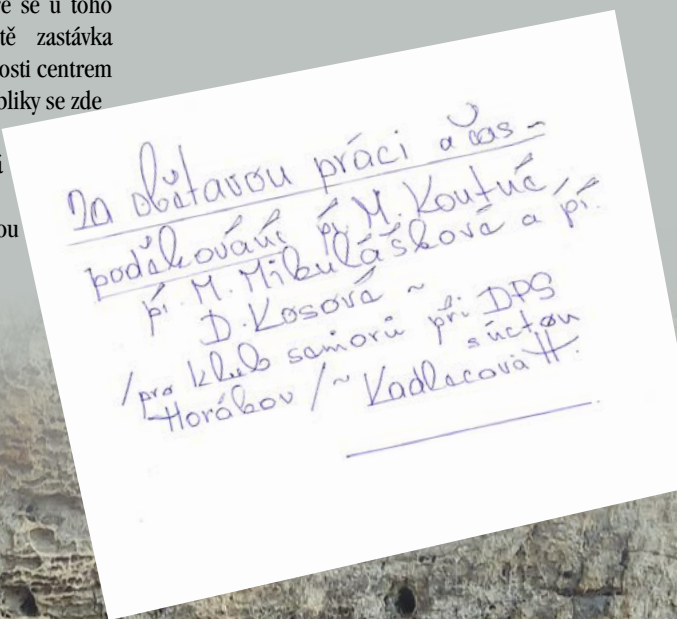 ře se u toho
tě zastávka
osti centrem
bliky se zde
ou
Za obětavou práci a čas -
poděkování pí. M. Koutné
pí. M. Mikuláškové a pí.
D. Kosové ~
/pro klub seniorů při DPS
Horákov/ ~ s úctou
Kadlecová H.